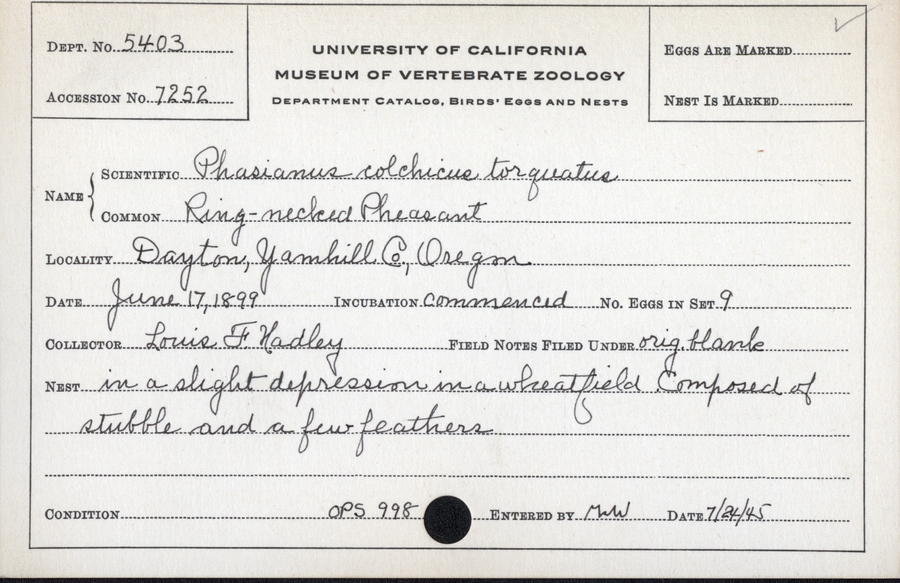 DEPT. NO. 5403
ACCESSION NO. 7252
UNIVERSITY OF CALIFORNIA
MUSEUM OF VERTEBRATE ZOOLOGY
DEPARTMENT CATALOG, BIRDS' EGGS AND NESTS
EGGS ARE MARKED
NEST IS MARKED
NAME
SCIENTIFIC Phasianus colchicus torquatus
COMMON Ring-necked Pheasant
LOCALITY Dayton, Yamhill Co., Oregon
DATE June 17, 1899 INCUBATION commenced NO. EGGS IN SET 9
COLLECTOR Louis F. Hadley FIELD NOTES FILED UNDER orig. blank
NEST in a slight depression in a wheatfield. Composed of
stubble and a few feathers
CONDITION OPS 998 ENTERED BY MWW DATE 7/24/45